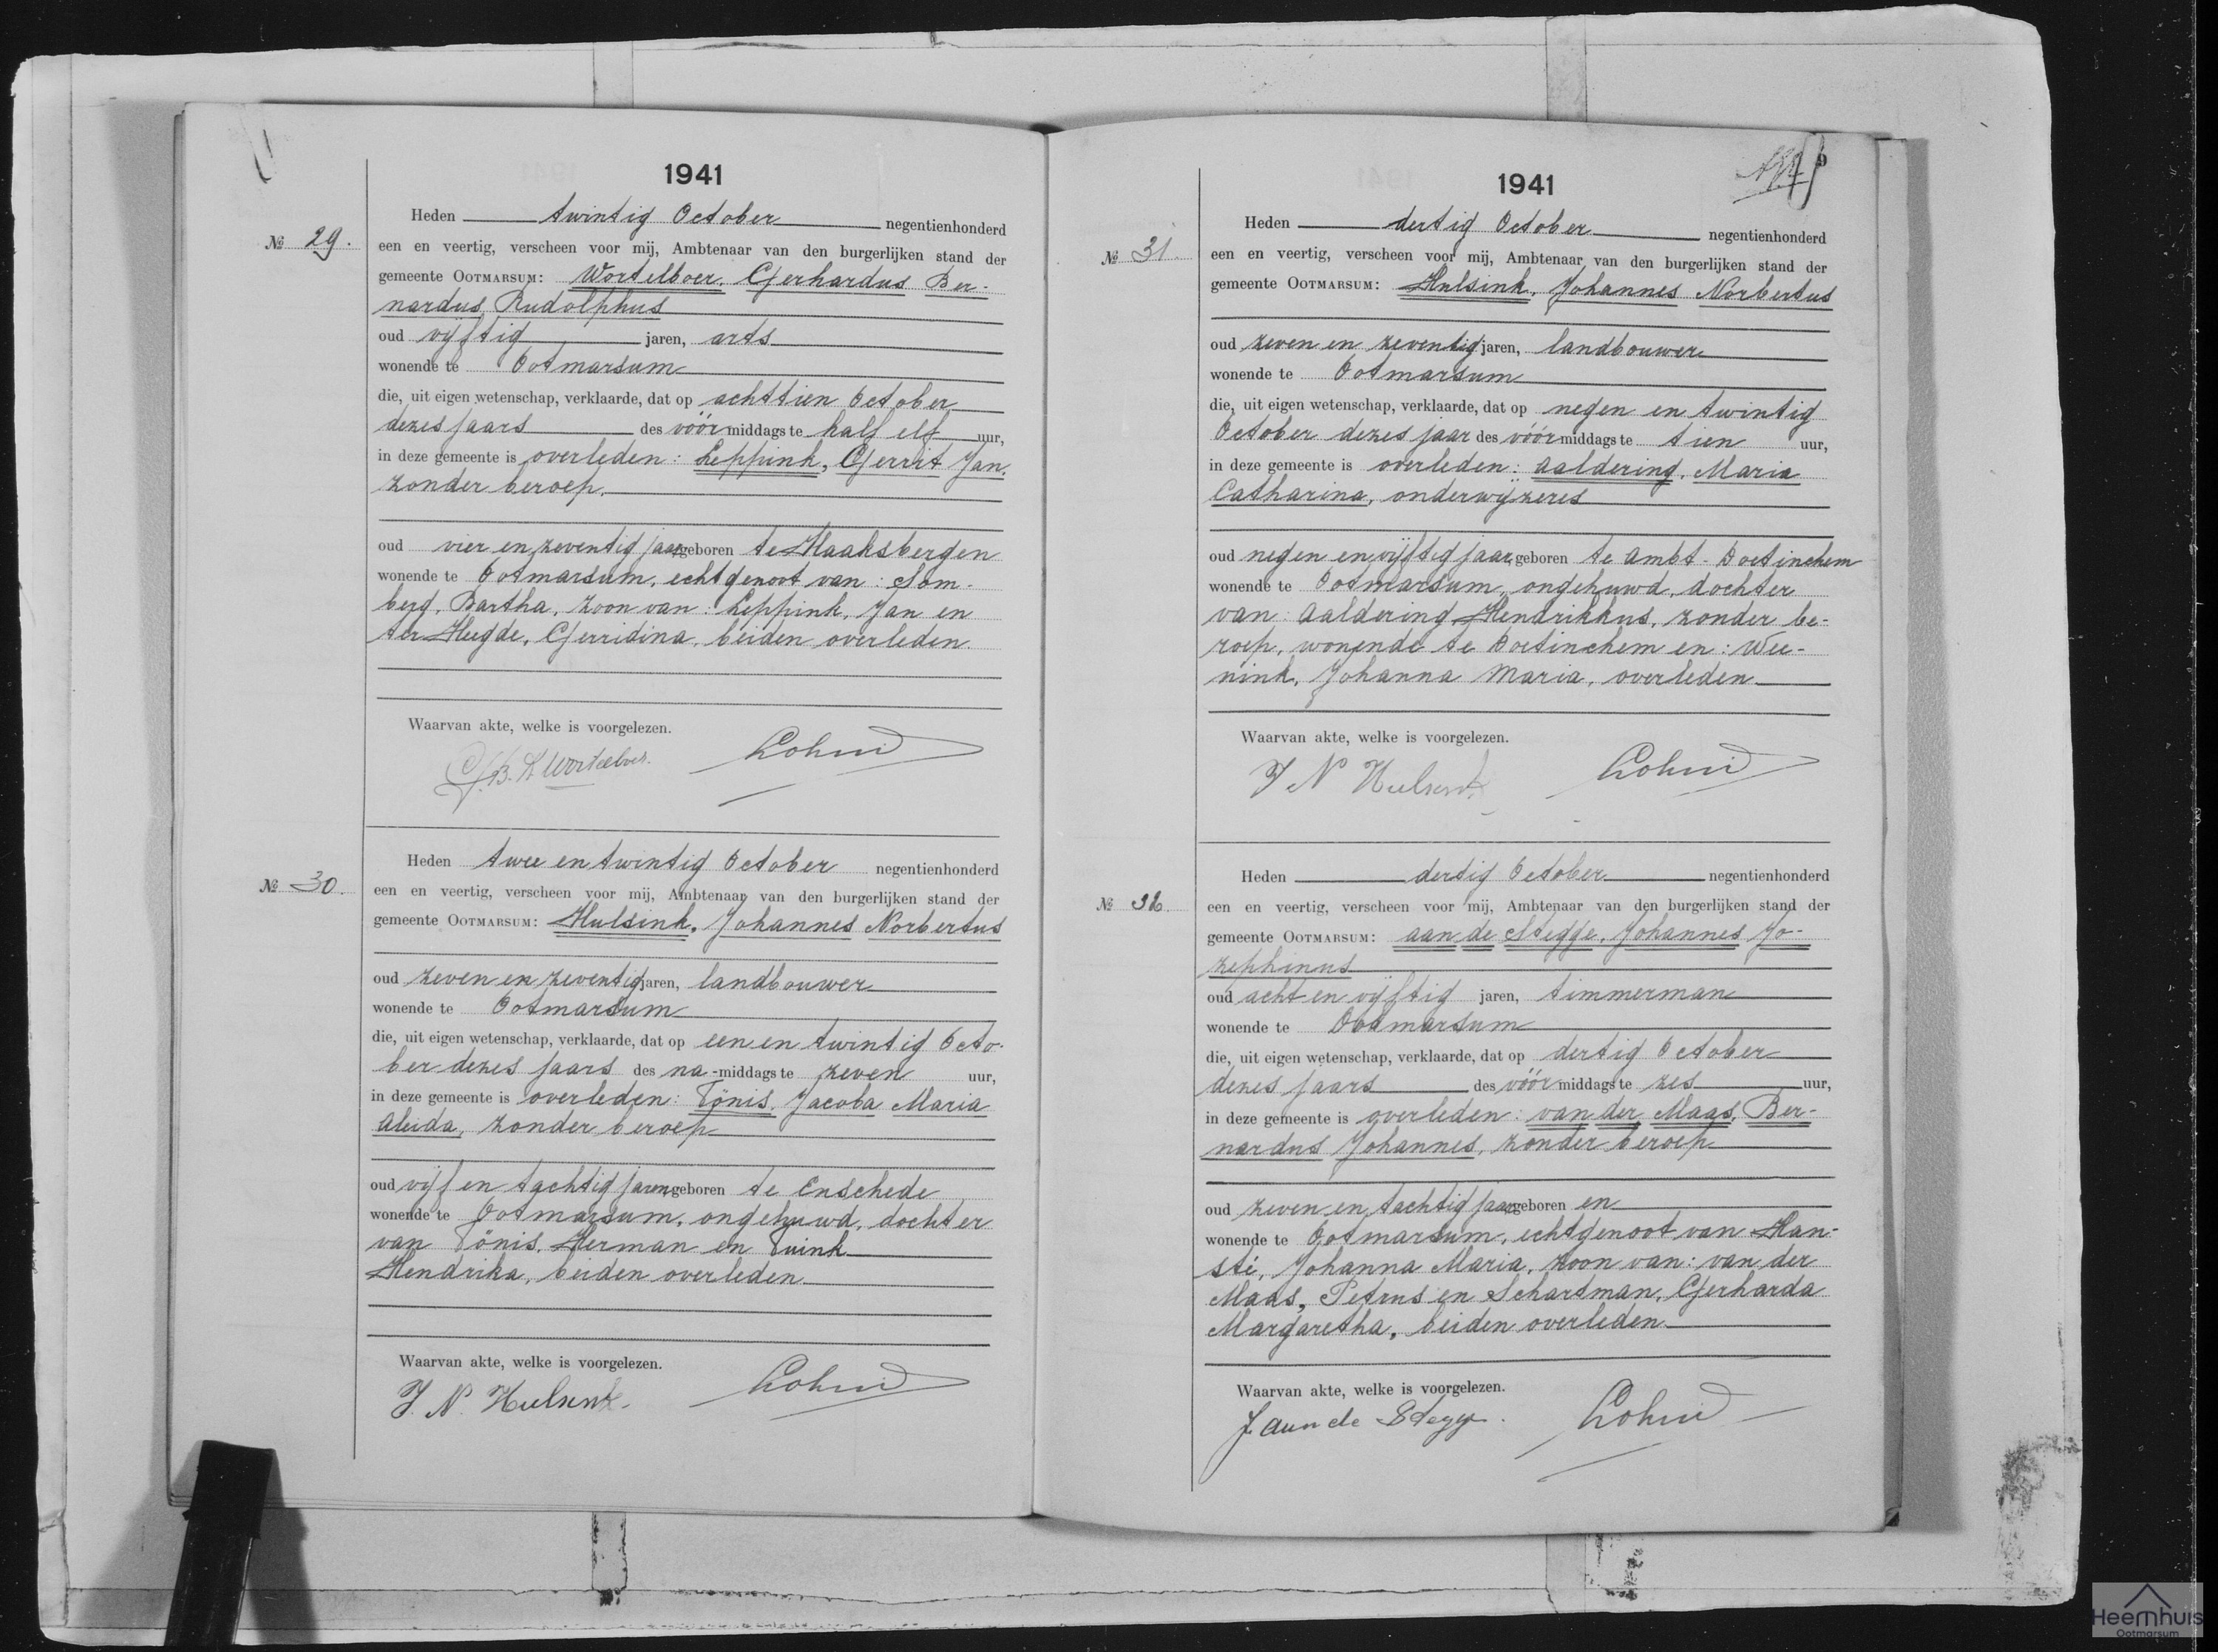 1941
Heden twintig October negentienhonderd
№ 29.
een en veertig, verscheen voor mij, Ambtenaar van den burgerlijken stand der
gemeente OOTMARSUM: Wortelboer, Gerhardus Ber-
nardus Rudolphus
oud vijftig jaren, arts
wonende te Ootmarsum
die, uit eigen wetenschap, verklaarde, dat op achttien October
dezes jaars des vóórmiddags te half elf uur,
in deze gemeente is overleden: Leppink, Gerrit Jan,
zonder beroep,
oud vier en zeventig jaar geboren te Haaksbergen
wonende te Ootmarsum, echtgenoot van: Som-
berg, Bartha, zoon van: Leppink, Jan en
ter Heegde, Gerridina, beiden overleden.
Waarvan akte, welke is voorgelezen.
G.B.R. Wortelboer. Lohuis
Heden twee en twintig October negentienhonderd
№ 30.
een en veertig, verscheen voor mij, Ambtenaar van den burgerlijken stand der
gemeente OOTMARSUM: Hulsink, Johannes Norbertus
oud zeven en zeventig jaren, landbouwer
wonende te Ootmarsum
die, uit eigen wetenschap, verklaarde, dat op een en twintig Octo-
ber dezes jaars des na-middags te zeven uur,
in deze gemeente is overleden: Tönis, Jacoba Maria
Aleida, zonder beroep
oud vijf en tachtig jaren geboren te Enschede
wonende te Ootmarsum, ongehuwd, dochter
van Tönis, Herman en Tuink
Hendrika, beiden overleden
Waarvan akte, welke is voorgelezen.
J. N. Hulsink. Lohuis
1941
Heden dertig October negentienhonderd
№ 31.
een en veertig, verscheen voor mij, Ambtenaar van den burgerlijken stand der
gemeente OOTMARSUM: Hulsink, Johannes Norbertus
oud zeven en zeventig jaren, landbouwer
wonende te Ootmarsum
die, uit eigen wetenschap, verklaarde, dat op negen en twintig
October dezes jaar des vóórmiddags te tien uur,
in deze gemeente is overleden: Aaldering, Maria
Catharina, onderwijzeres
oud negen en vijftig jaar, geboren te Ambt-Doetinchem
wonende te Ootmarsum, ongehuwd, dochter
van: Aaldering Hendrikkus, zonder be-
roep, wonende te Doetinchem en: Wee-
nink, Johanna Maria, overleden
Waarvan akte, welke is voorgelezen.
J N Hulsink Lohuis
Heden dertig October negentienhonderd
№ 32.
een en veertig, verscheen voor mij, Ambtenaar van den burgerlijken stand der
gemeente OOTMARSUM: aan de Stegge, Johannes Jo-
zephinus
oud acht en vijftig jaren, timmerman
wonende te Ootmarsum
die, uit eigen wetenschap, verklaarde, dat op dertig October
dezes jaars des vóórmiddags te zes uur,
in deze gemeente is overleden: van der Maas, Ber-
nardus Johannes, zonder beroep
oud zeven en tachtig jaar geboren en
wonende te Ootmarsum, echtgenoot van Han-
sté, Johanna Maria, zoon van: van der
Maas, Petrus en Schartman, Gerharda
Margaretha, beiden overleden
Waarvan akte, welke is voorgelezen.
J. aan de Stegge. Lohuis
Heemhuis
Ootmarsum